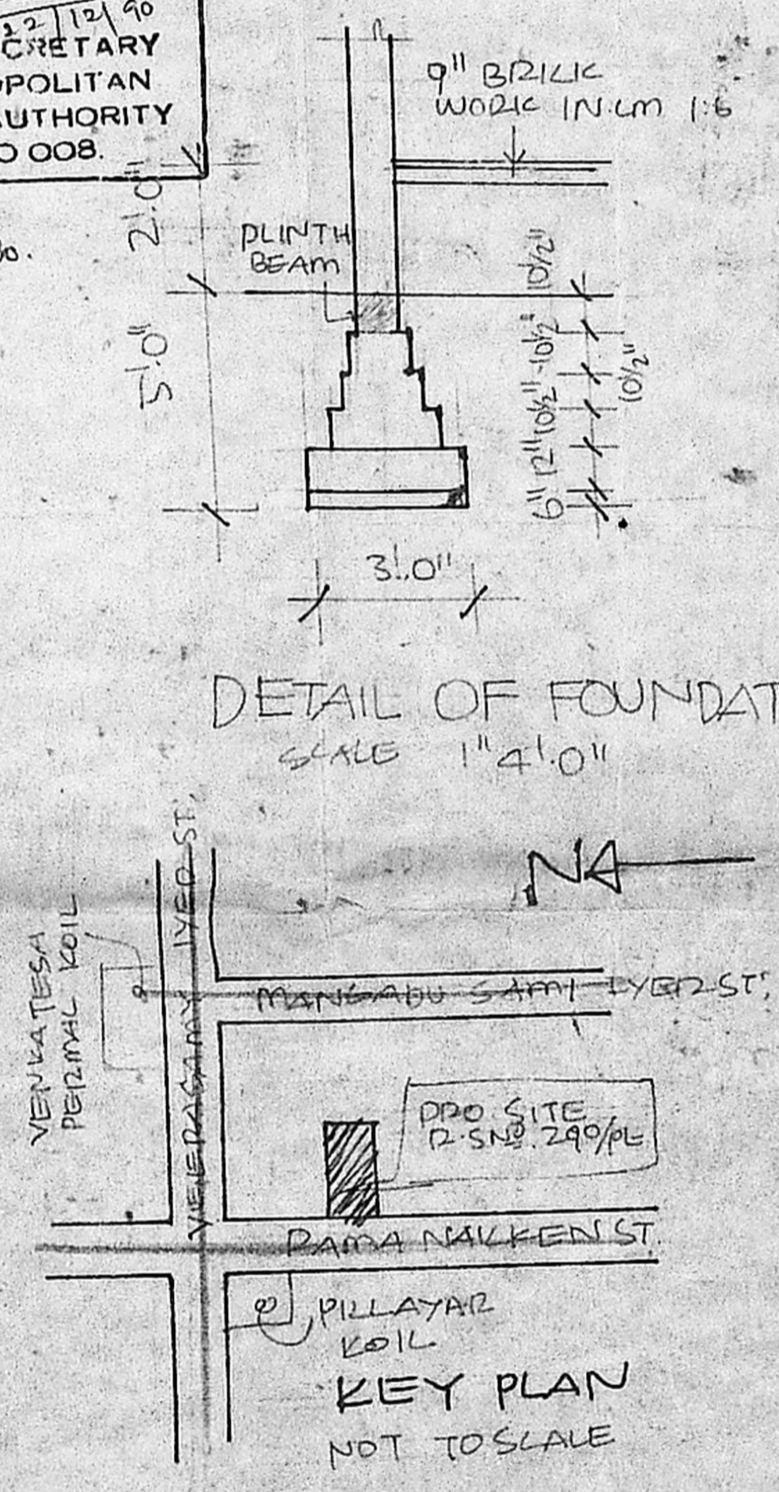 22/12/90
CRETARY
POLITAN
UTHORITY
0 008.
9" BRICK
WORK IN.CM 1:6
2'.0"
PLINTH
BEAM
10½"
5'.0"
10½"
10½"
10½"
12"
6"
3'.0"
DETAIL OF FOUNDAT
SCALE 1" 4'.0"
N
VEERASAMY IYER ST.
VENKATESA
PERMAL KOIL
MANGADU SAMI IYER ST.
PRO. SITE
R.SNº. 290/PL
RAMA NAIKKEN ST.
PILLAYAR
KOIL
KEY PLAN
NOT TO SCALE